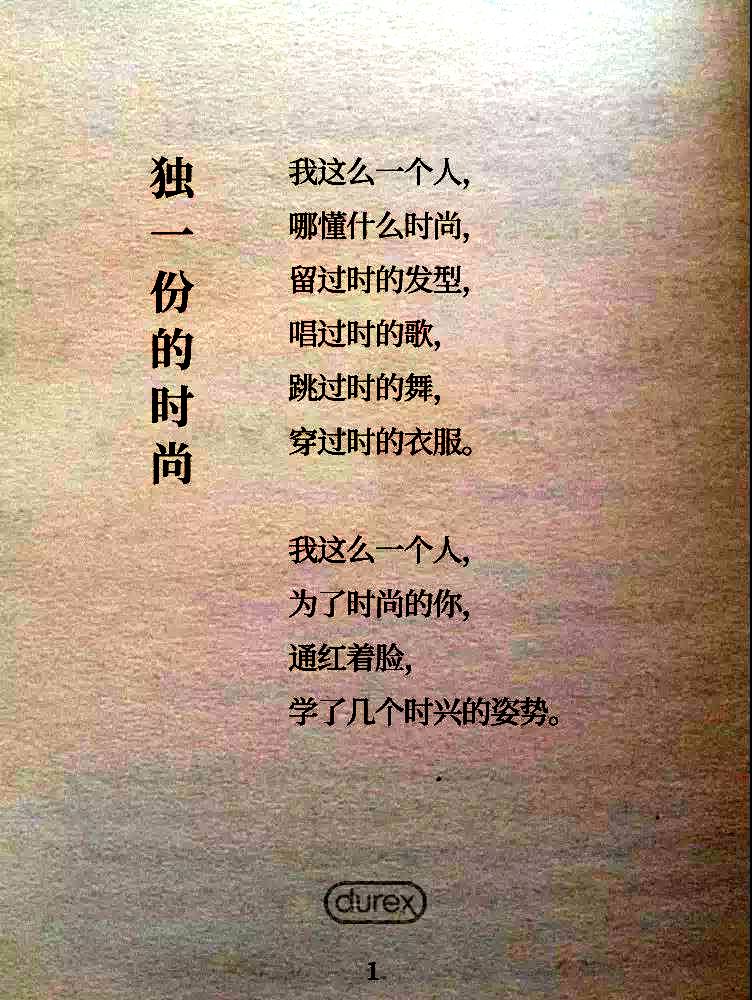 独一份的时尚
我这么一个人，
哪懂什么时尚，
留过时的发型，
唱过时的歌，
跳过时的舞，
穿过时的衣服。
我这么一个人，
为了时尚的你，
通红着脸，
学了几个时兴的姿势。
durex
1